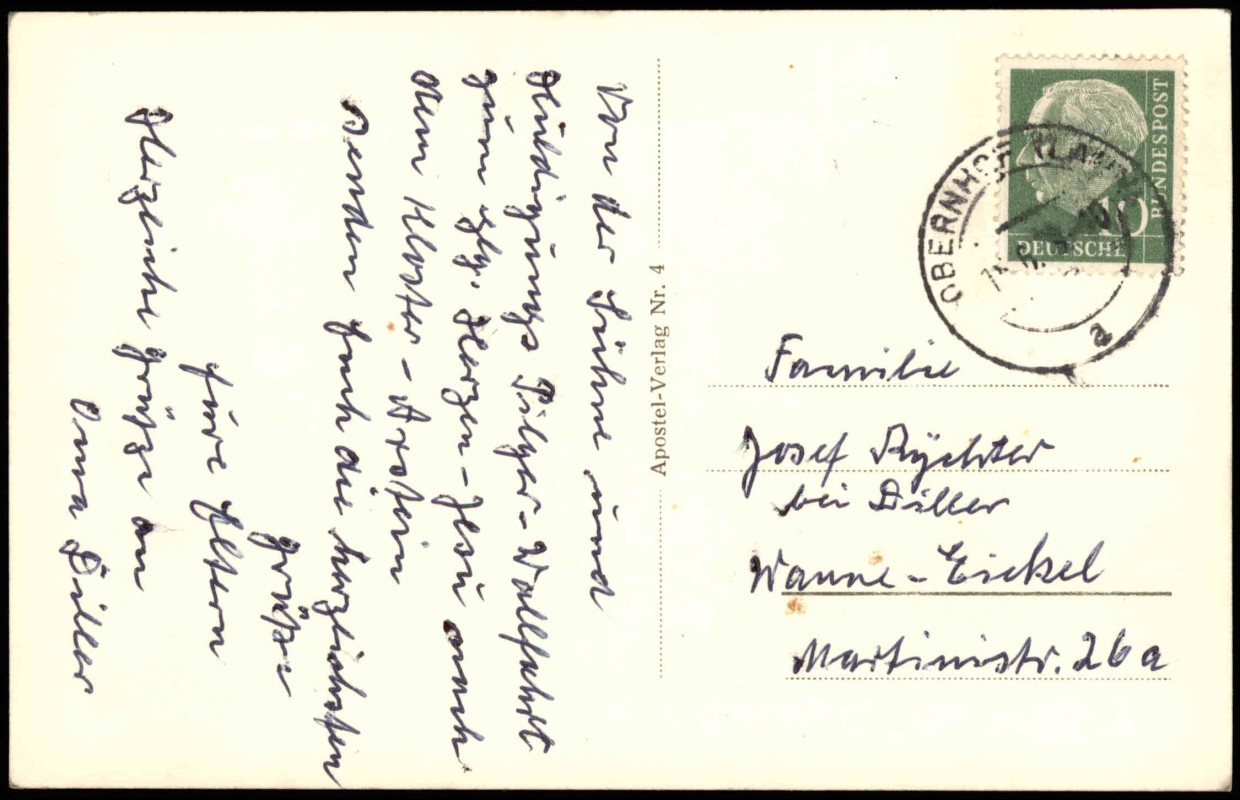 Von der Sühne und
Huldigungs Pilger-Wallfahrt
zum hlg. Herzen-Jesu nach
dem Kloster-Arnstein
senden Euch die herzlichsten
Grüße
Eure Eltern
Herzliche Grüße an
Oma Diller
Apostel-Verlag Nr. 4
BUNDESPOST
10
DEUTSCHE
OBERNHOF (LAHN)
a
Familie
Josef Rychter
bei Diller
Wanne-Eickel
Martinistr. 26a